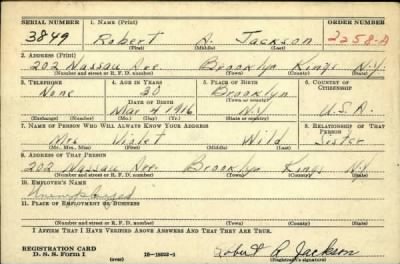 SERIAL NUMBER 1. NAME (Print) ORDER NUMBER
3849 Robert A. Jackson 2258-A
(First) (Middle) (Last)
2. ADDRESS (Print)
202 Nassau Ave. Brooklyn Kings N.Y.
(Number and street or R. F. D. number) (Town) (County) (State)
3. TELEPHONE 4. AGE IN YEARS 5. PLACE OF BIRTH 6. COUNTRY OF CITIZENSHIP
None Brooklyn
DATE OF BIRTH
Mar 4 1916 NY U.S.A.
(Exchange) (Number) (Mo.) (Day) (Yr.) (State or country)
7. NAME OF PERSON WHO WILL ALWAYS KNOW YOUR ADDRESS 8. RELATIONSHIP OF THAT PERSON
Mrs Violet Wild Sister
(Mr., Mrs., Miss) (First) (Middle) (Last)
9. ADDRESS OF THAT PERSON
202 Nassau Ave. Brooklyn Kings NY
(Number and street or R. F. D. number) (Town) (County) (State)
10. EMPLOYER'S NAME
Unemployed
11. PLACE OF EMPLOYMENT OR BUSINESS
(Number and street or R. F. D. number) (Town) (County) (State)
I AFFIRM THAT I HAVE VERIFIED ABOVE ANSWERS AND THAT THEY ARE TRUE.
REGISTRATION CARD
D. S. S. Form 1 (over) Robert A. Jackson
(Registrant's signature)